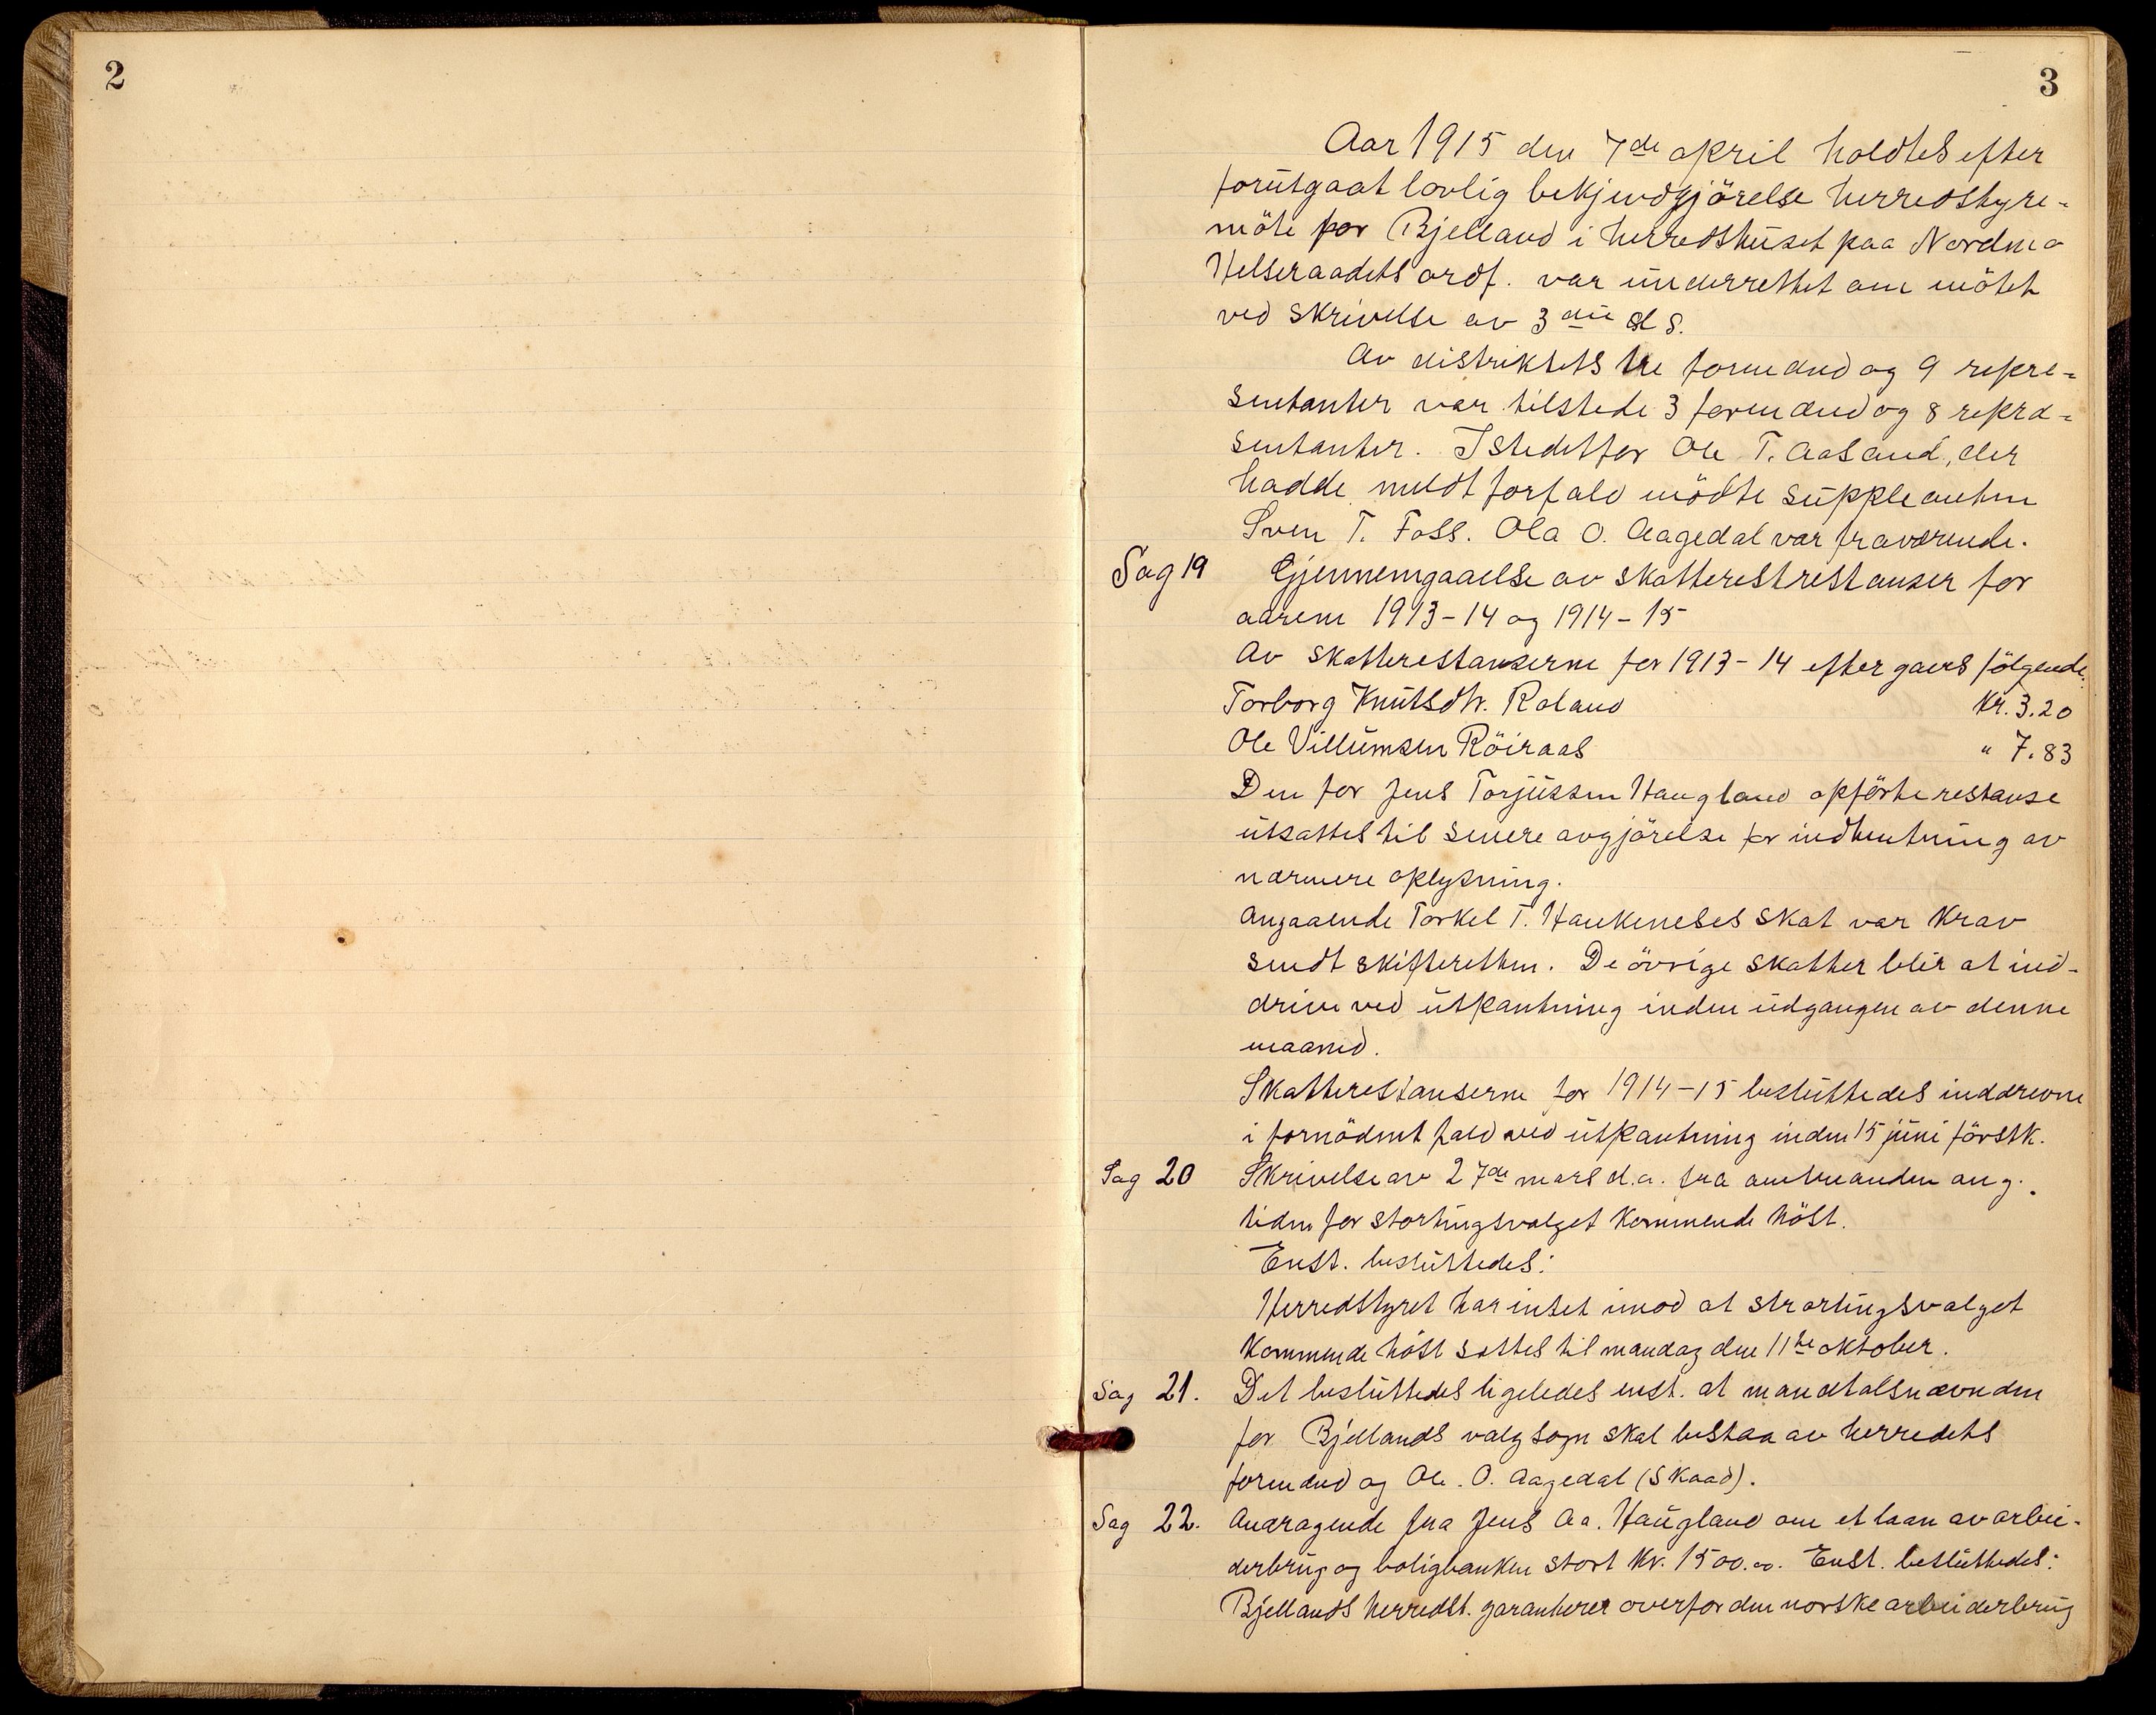 2
3
Aar 1915 den 7de april holdtes efter
forutgaat lovlig bekjendgjörelse herredstyre-
möte for Bjelland i herredshuset paa Nordmo
Helseraadets ordf. var underrettet om mötet
ved skrivelse av 3die ds.
Av distriktets tre formænd og 9 repræ-
sentanter var tilstede 3 formænd og 8 repræ-
sentanter. Istedetfor Ole T. Aasland, der
hadde meldt forfald mödte suppleanten
Sven T. Foss. Ola O. Aagedal var fraværende.
Sag 19 Gjennemgaaelse av skatterestrestanser for
aarene 1913-14 og 1914-15
Av skatterestanserne for 1913-14 eftergaves følgende.
Torborg Knutsdtr. Roland Kr. 3.20
Ole Villumsen Röiraas " 7.83
Den for Jens Torjussen Haugland opförte restanse
utsattes til senere avgjörelse for indhentning av
nærmere oplysning.
Angaaende Torkel T. Haukeneses skat var krav
sendt skifteretten. De övrige skatter blir at ind-
drive ved utpantning inden udgangen av denne
maaned.
Skatterestanserne for 1914-15 besluttedes inddrevne
i fornödent fald ved utpantning inden 15 juni förstk.
Sag 20 Skrivelse av 27de mars d.a. fra amtmanden ang.
tiden for stortingsvalget kommende höst.
Enst. besluttedes:
Herredstyret har intet imod at strortingsvalget
kommende höst sættes til mandag den 11te oktober.
Sag 21. Det besluttedes ligeledes enst. at mandtalsnævnden
for Bjellands valgsogn skal bestaa av herredets
formænd og Ole O. Aagedal (Skaad).
Sag 22. Andragende fra Jens Aa. Haugland om et laan av arbei-
derbrug og boligbanken stort kr. 1500.00. Enst. besluttedes:
Bjellands herredst. garanterer overfor den norske arbeiderbrug